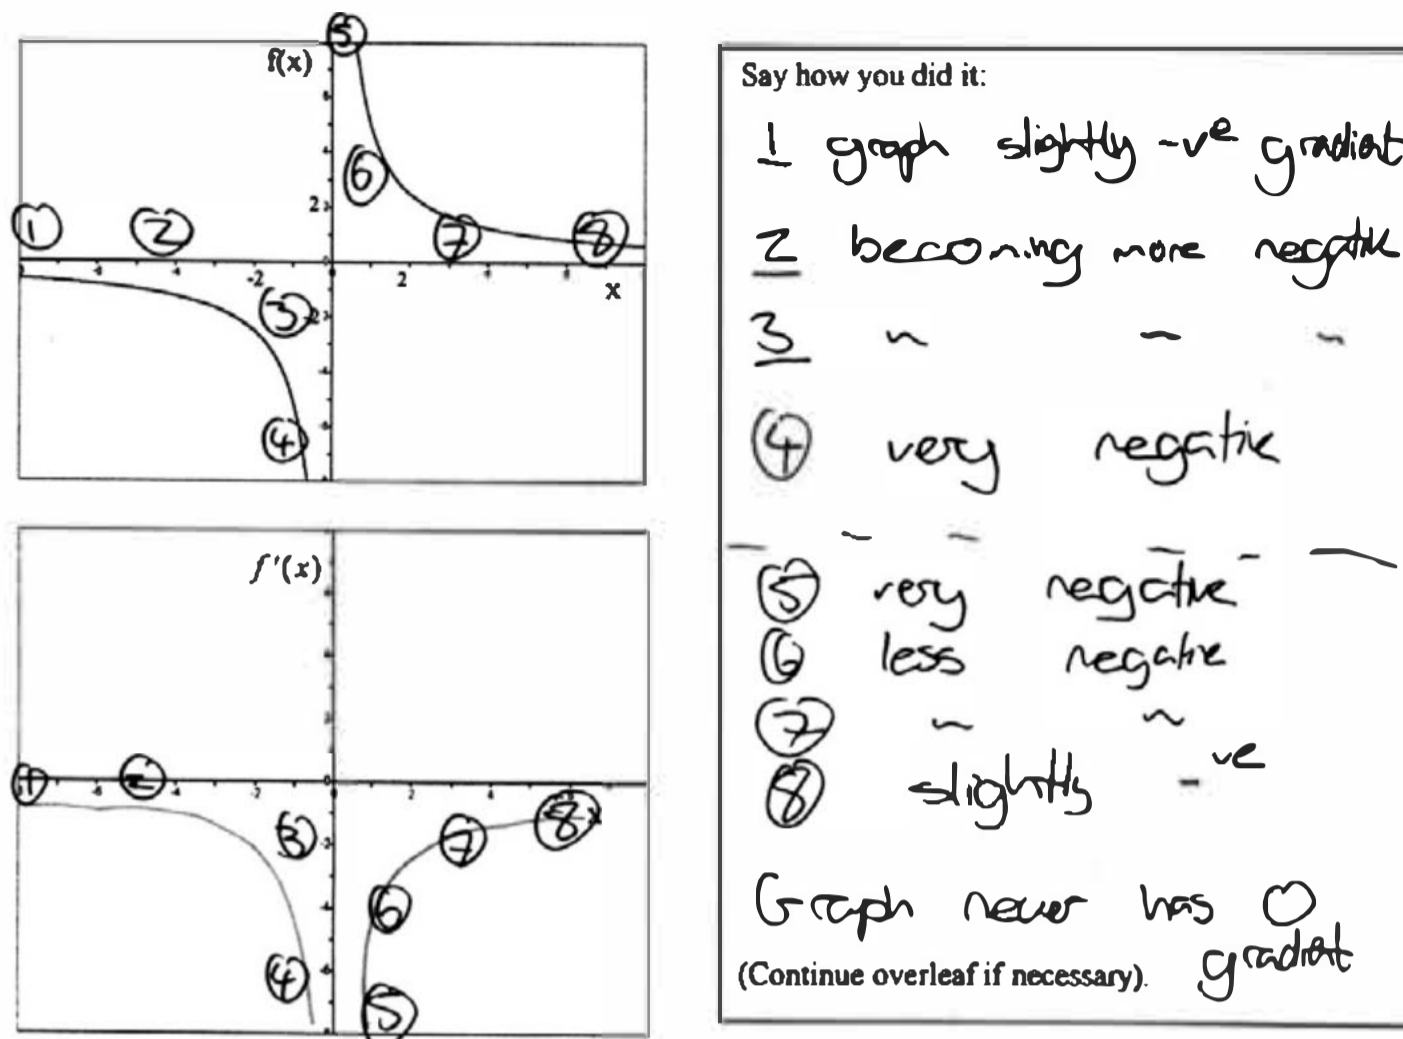 5
f(x)
6
4
6
2
1
2
7
8
0
-6
-4
-2
2
4
6
x
3
-2
-4
4
-6
f'(x)
6
4
2
1
2
-4
-2
0
2
4
8
x
3
-2
7
6
-4
4
-6
5
Say how you did it:
1 graph slightly -ve gradient
2 becoming more negative
3 " " "
4 very negative
5 very negative
6 less negative
7 " "
8 slightly -ve
Graph never has 0
gradient
(Continue overleaf if necessary).